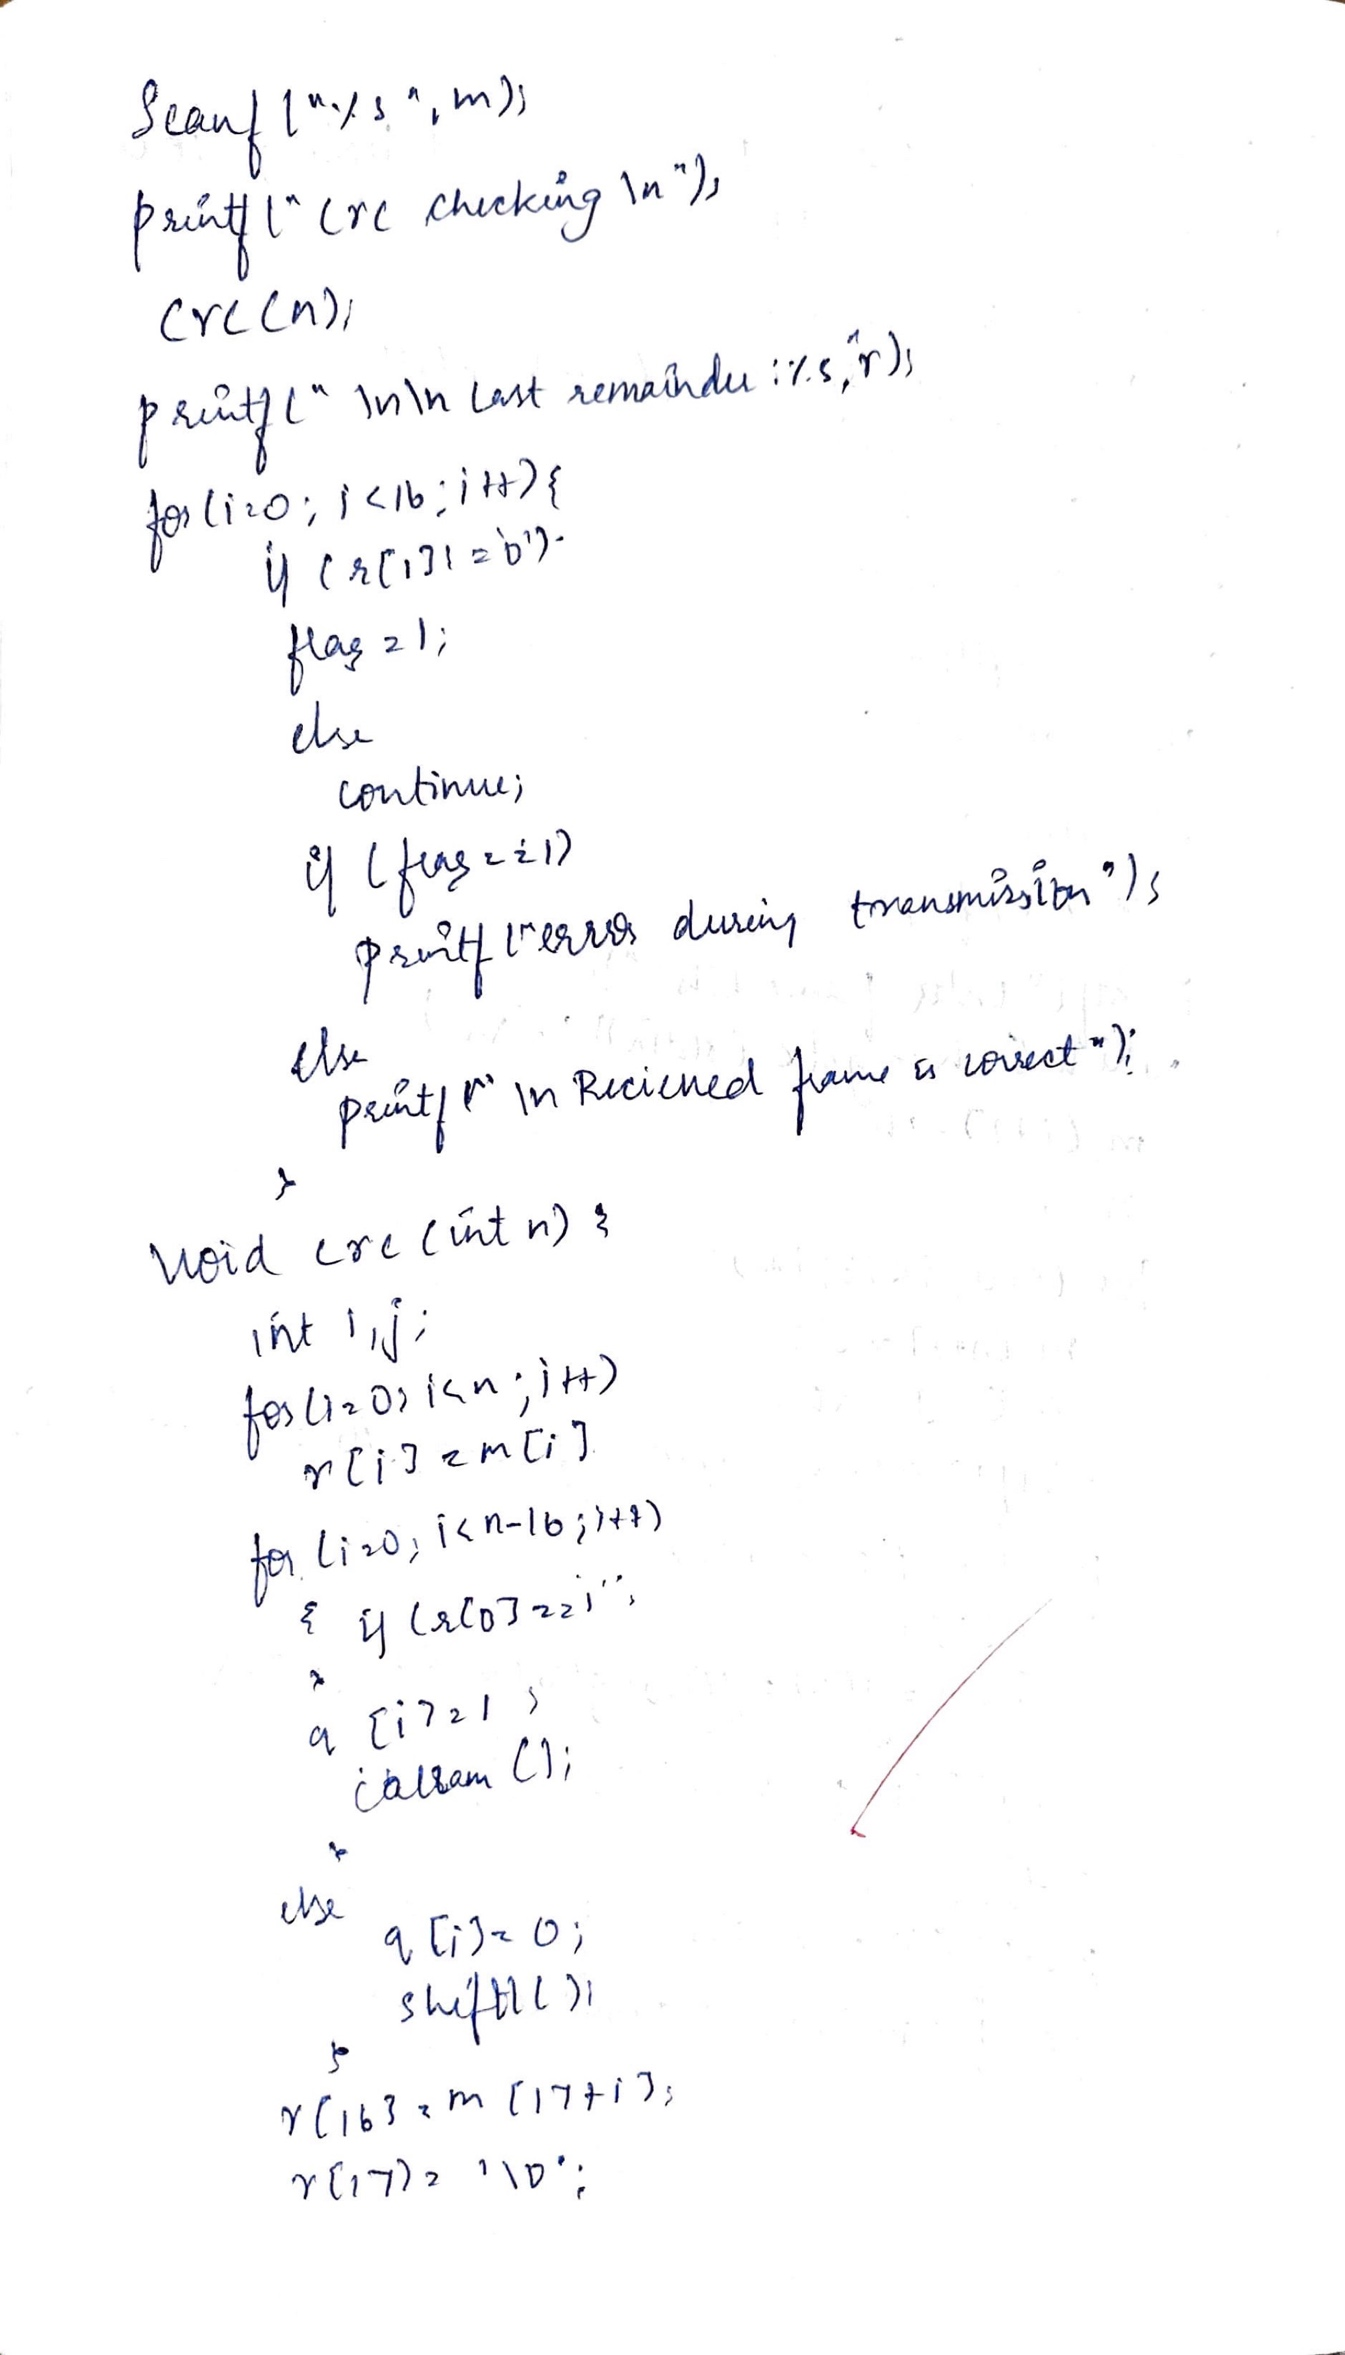 Scanf ("%s", m);
printf (" crc checking \n");
crc(n);
printf (" \n\n Last remainder : %s, "r);
for (i=0; i<16; i++) {
if (r[i] != '0')
flag = 1;
else
continue;
if (flag == 1)
printf ("error during transmission");
else
printf (" \n Recieved frame is correct");
}
void crc (int n) {
int i,j;
for (i=0; i<n; i++)
r[i] = m[i]
for (i=0; i<n-16; i++)
{ if (r[0] == '1'
}
q [i] = 1 ;
calram ();
}
else
q [i] = 0;
shiftl();
}
r[16] = m [17+i];
r[17] = '\0';